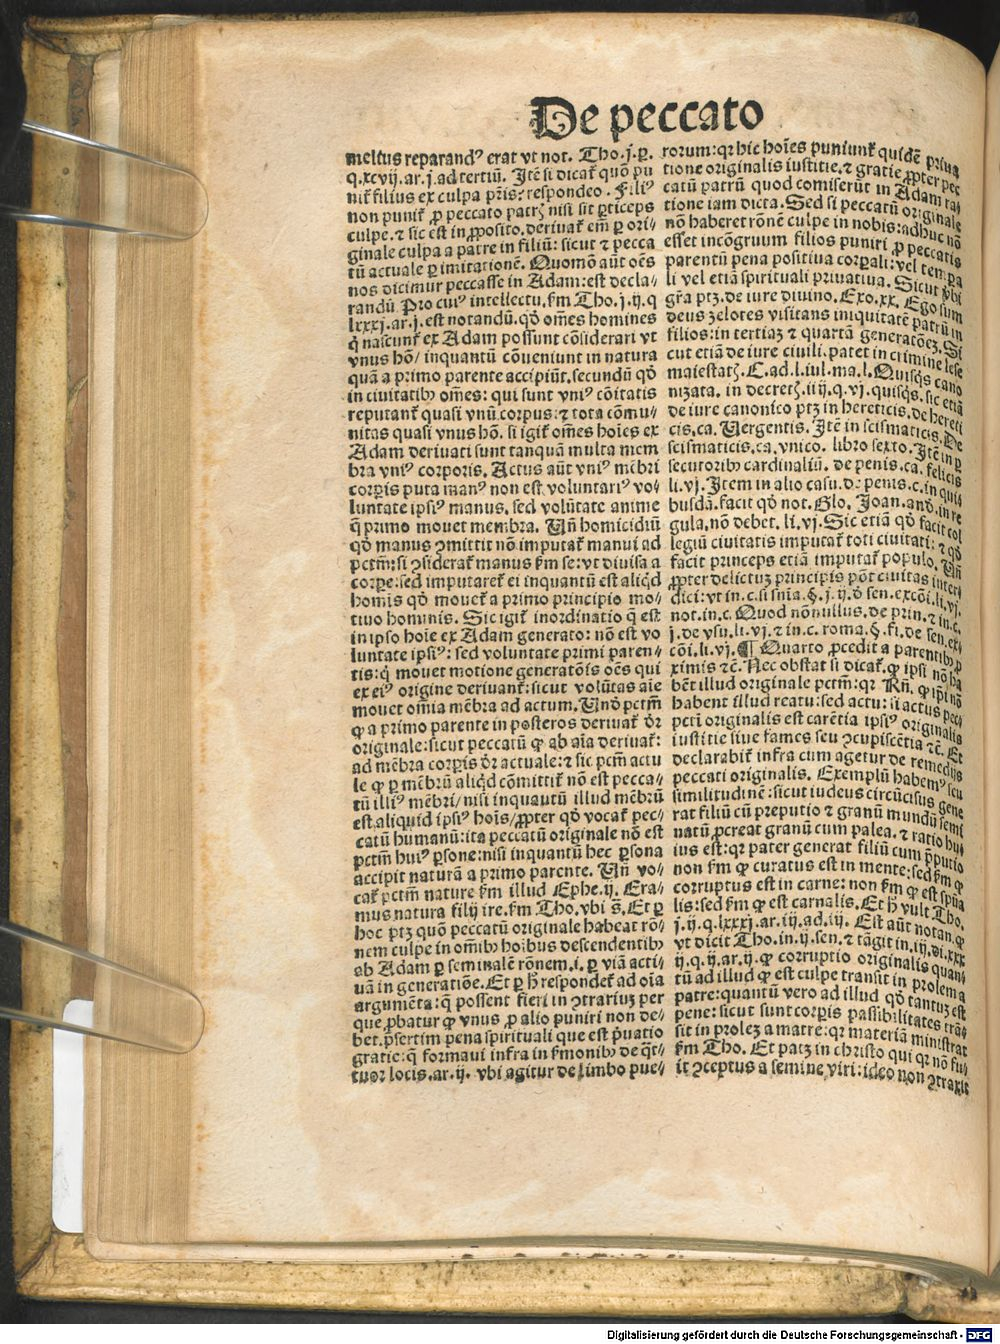 De peccato
melius reparandꝰ erat vt not. Tho. j. p̄.
q. xcvij. ar. j. ad tertiū. Itē si dicat̄ quō pu
nit̄ filius ex culpa p̄ris? respondeo. Filiꝰ
non punit̄ ꝓ peccato patrꝭ nisi sit ꝑticeps
culpe. ⁊ sic est in ꝓposito. deriuat̄ em̄ ꝑ ori⸗
ginale culpa a patre in filiū: sicut ⁊ pecca
tū actuale ꝑ imitationē. Quomō aūt oēs
nos dicimur peccasse in Adam: est decla⸗
randū Pro cuiꝰ intellectu. ẜm Tho. j. ij. q
lxxxj. ar. j. est notandū. qd̄ om̄es homines
q̇ nascunt̄ ex Adam possunt cōsiderari vt
vnus hō/ inquantū cōueniunt in natura
quā a primo parente accipiūt. secundū qd̄
in ciuitatibꝰ om̄es: qui sunt vniꝰ cōitatis
reputant̄ quasi vnū corpus: ⁊ tota cōmu⸗
nitas quasi vnus hō. si igit̄ om̄es hoīes ex
Adam deriuati sunt tanquā multa mem
bra vniꝰ corporis. Actus aūt vniꝰ mēbri
corꝑis puta manꝰ non est voluntariꝰ vo⸗
luntate ipsiꝰ manus. sed volūtate anime
q̄ primo mouet membra. Vn̄ homicidiū
qd̄ manus ꝯmittit nō imputat̄ manui ad
pctm̄: si ꝯsiderat̄ manus ẜm se: vt diuisa a
corꝑe: sed imputaret̄ ei inquantū est aliqd̄
homīs qd̄ mouet̄ a primo principio mo⸗
tiuo hominis. Sic igit̄ inordinatio q̄ est
in ipso hoīe ex Adam generato: nō est vo
luntate ipsiꝰ: sed voluntate primi paren⸗
tis: q̇ mouet motione generatōis oēs qui
ex eiꝰ origine deriuant̄: sicut volūtas aīe
mouet om̄ia mēbra ad actum. Unō pctm̄
ꝙ a primo parente in posteros deriuat̄ dr̄
originale: sicut peccatū ꝙ ab aīa deriuat̄:
ad mēbra corꝑis dr̄ actuale: ⁊ sic pctm̄ actu
le ꝙ ꝑ mēbrū aliqd̄ cōmittit̄ nō est pecca⸗
tū illiꝰ mēbri/ nisi inquantū illud mēbrū
est aliquid ipsiꝰ hoīs/ ꝓpter qd̄ vocat̄ pec⸗
catū humanū: ita peccatū originale nō est
pctm̄ huiꝰ ꝑsone: nisi inquantū hec ꝑsona
accipit naturā a primo parente. Vn̄ vo⸗
cat̄ pctm̄ nature ẜm illud Ephe. ij. Era⸗
mus natura filij ire. ẜm Tho. vbi s̄. Et ꝑ
hoc ptꝫ quō peccatū originale habeat rō⸗
nem culpe in om̄ibꝰ hoībus descendentibꝰ
ab Adam ꝑ seminalē rōnem. i. ꝑ viā acti⸗
uā in generatiōe. Et ꝑ h̄ respondet̄ ad oīa
argumēta: q̄ possent fieri in ꝯtrariuꝫ per
que ꝓbatur ꝙ vnus ꝓ alio puniri non de⸗
bet. p̄sertim pena spirituali que est p̄uatio
gratie: q̄ formaui infra in ẜmonibꝰ de q̈t⸗
tuor locis. ar. ij. vbi agitur de limbo pue⸗
rorum: qꝛ hic hoīes puniunt̄ quidē priua
tione originalis iustitie. ⁊ gratie ꝓpter pec
catū patrū quod comiserūt in Adam ra⸗
tione iam dicta. Sed si peccatū originale
nō haberet rōnē culpe in nobis: adhuc nō
esset incōgruum filios puniri ꝓ peccatis
parentū pena positiua corꝑali: vel tempꝫa
li vel etiā spirituali priuatiua. Sicut ꝟbi
gr̄a ptꝫ. de iure diuino. Exo. xx. Ego sum
deus zelotes visitans iniquitatē patrū in
filios: in tertiaꝫ ⁊ quartā generatōeꝫ. Si
cut etiā de iure ciuili. patet in crimine lese
maiestatꝭ. C. ad. l. iul. ma. l. Quisq̇s cano
nizata. in decretꝭ. ii ij. q. vj. quisq̇s. sic etiā
de iure canonico ptꝫ in hereticis. de hereti
cis. ca. Vergentis. Itē in scismaticis. De
scismaticis. ca. vnico. libro sexto. Itē in ꝑ
secutoribꝰ cardinaliū. de penis. ca. felicis
li. vj. Item in alio casu. de penis. c. in qui⸗
busdā. facit qd̄ not. Glo. Joan. and̄. in re
gula. nō debet. li. vj. Sic etiā qd̄ facit col
legiū ciuitatis imputat̄ toti ciuitati: ⁊ qd̄
facit princeps etiā imputat̄ populo. Vn̄
ꝓpter delictuꝫ principis pōt ciuitas interi
dici: vt in. c. si sn̄ia. §. j. ij. d̄ sen. excōi. li. vj.
not. in. c. Quod nōnullus. de prin. ⁊ in. c.
j. de vsu. li. vj. ⁊ in. c. roma. §. fi. de sen. ex⸗
cōi. li. vj. ¶ Quarto ꝓcedit a parentibꝰ ꝓ
ximis ⁊c̄. Nec obstat si dicat̄. ꝙ ipsi nō ha
bēt illud originale pctm̄: qꝛ Rn̄. ꝙ ip̄i nō
habent illud reatu: sed actu: si actus pec⸗
peti originalis est carētia ipsiꝰ originalis
iustitie siue fames seu ꝯcupiscētia ⁊c̄. Et
declarabit̄ infra cum agetur de remedijs
peccati originalis. Exemplū habemꝰ seu
similitudinē: sicut iudeus circūcisus gene
rat filiū cū preputio ⁊ granū mundū semi
natū ꝓcreat granū cum palea. ⁊ ratio hu⸗
ius est: qꝛ pater generat filiū cum p̄putio
non ẜm ꝙ curatus est in mente: sed ẜm ꝙ
corruptus est in carne: non ẜm ꝙ est spūa
lis: sed ẜm ꝙ est carnalis. Et h̄ vult Tho.
j. ij. q. lxxxj. ar. iij. ad. iij. Est aūt notan. ꝙ
vt dicit Tho. in. ij. sen. ⁊ tāgit in. iij. di. xxx
ij. q. ij. ar. ij. ꝙ corruptio originalis quan⸗
tū ad illud ꝙ est culpe transit in prolem a
patre: quantū vero ad illud qd̄ tantuꝫ est
pene: sicut sunt corꝑis passibilitates trā⸗
sit in proleꝫ a matre: qꝛ materiā ministrat
ẜm Tho. Et patꝫ in christo qui qꝛ nō fu⸗
it ꝯceptus a semine viri: ideo non ꝯtraxit
Digitalisierung gefördert durch die Deutsche Forschungsgemeinschaft - DFG